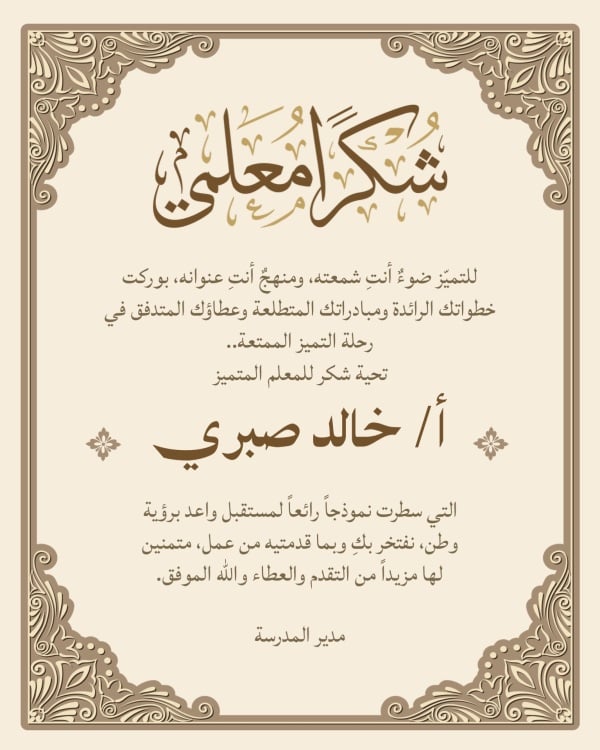 شُكْرًا مُعَلمي
للتميّز ضوءٌ أنتِ شمعته، ومنهجٌ أنتِ عنوانه، بوركت
خطواتك الرائدة ومبادراتك المتطلعة وعطاؤك المتدفق في
رحلة التميز الممتعة..
تحية شكر للمعلم المتميز
أ/ خالد صبري
التي سطرت نموذجاً رائعاً لمستقبل واعد برؤية
وطن، نفتخر بكِ وبما قدمتيه من عمل، متمنين
لها مزيداً من التقدم والعطاء والله الموفق.
مدير المدرسة